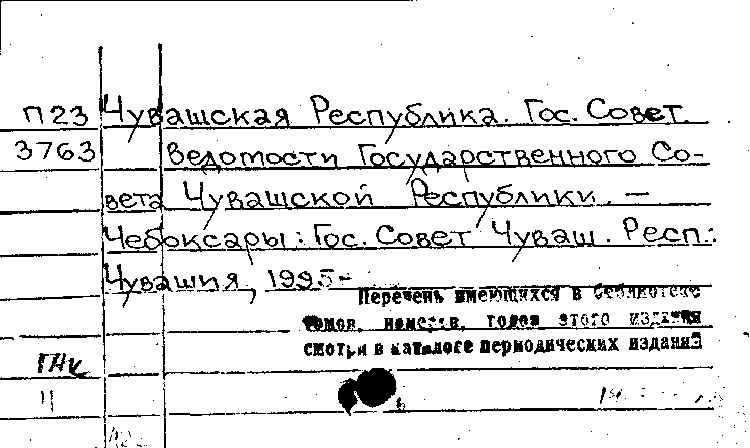 П23 Чувашская Республика. Гос. Совет.
3763 Ведомости Государственного Со-
вета Чувашской Республики. —
Чебоксары: Гос. Совет Чуваш. Респ.:
Чувашия, 1995-
Перечень имеющихся в библиотеке
томов, номеров, годов этого издания
смотри в каталоге периодических изданий
ГАК